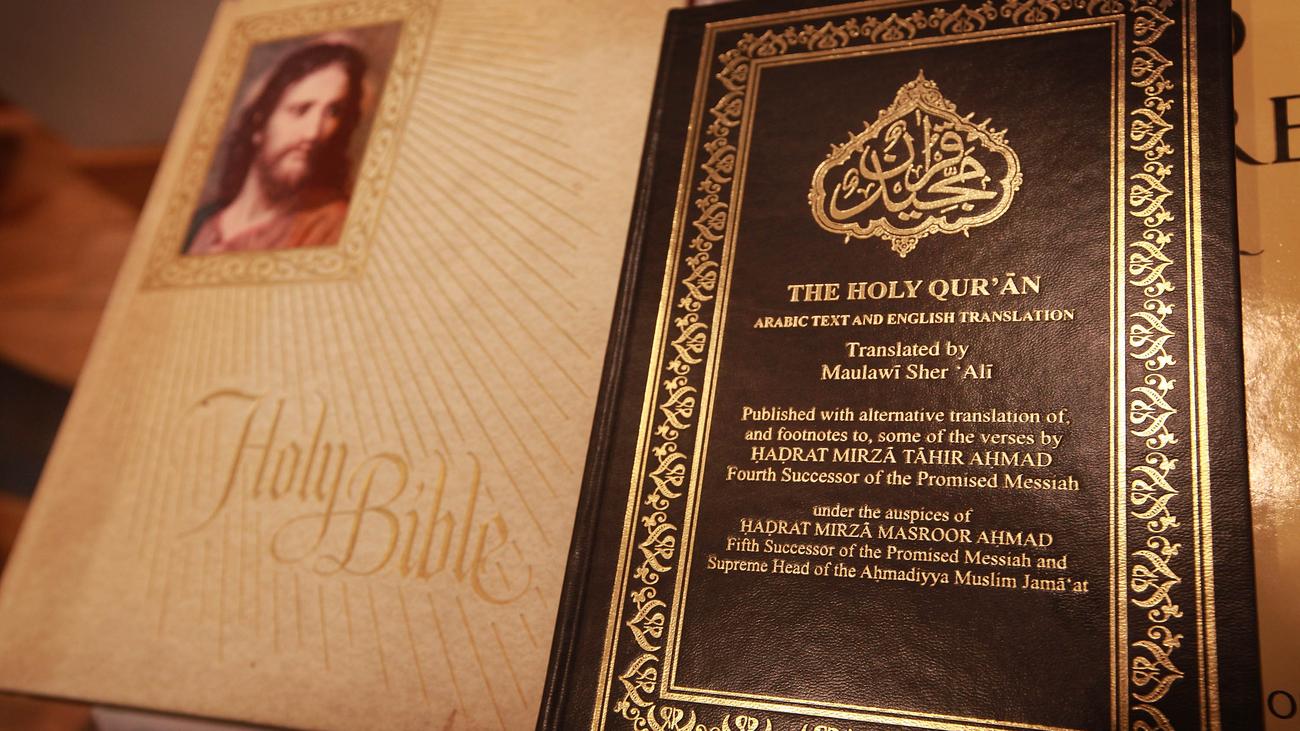 Holy Bible
قرآن مجيد
THE HOLY QUR’ĀN
ARABIC TEXT AND ENGLISH TRANSLATION
Translated by
Maulawī Sher ‘Alī
Published with alternative translation of,
and footnotes to, some of the verses by
ḤAḌRAT MIRZĀ ṬĀHIR AḤMAD
Fourth Successor of the Promised Messiah
under the auspices of
ḤAḌRAT MIRZĀ MASROOR AḤMAD
Fifth Successor of the Promised Messiah and
Supreme Head of the Aḥmadiyya Muslim Jamā‘at